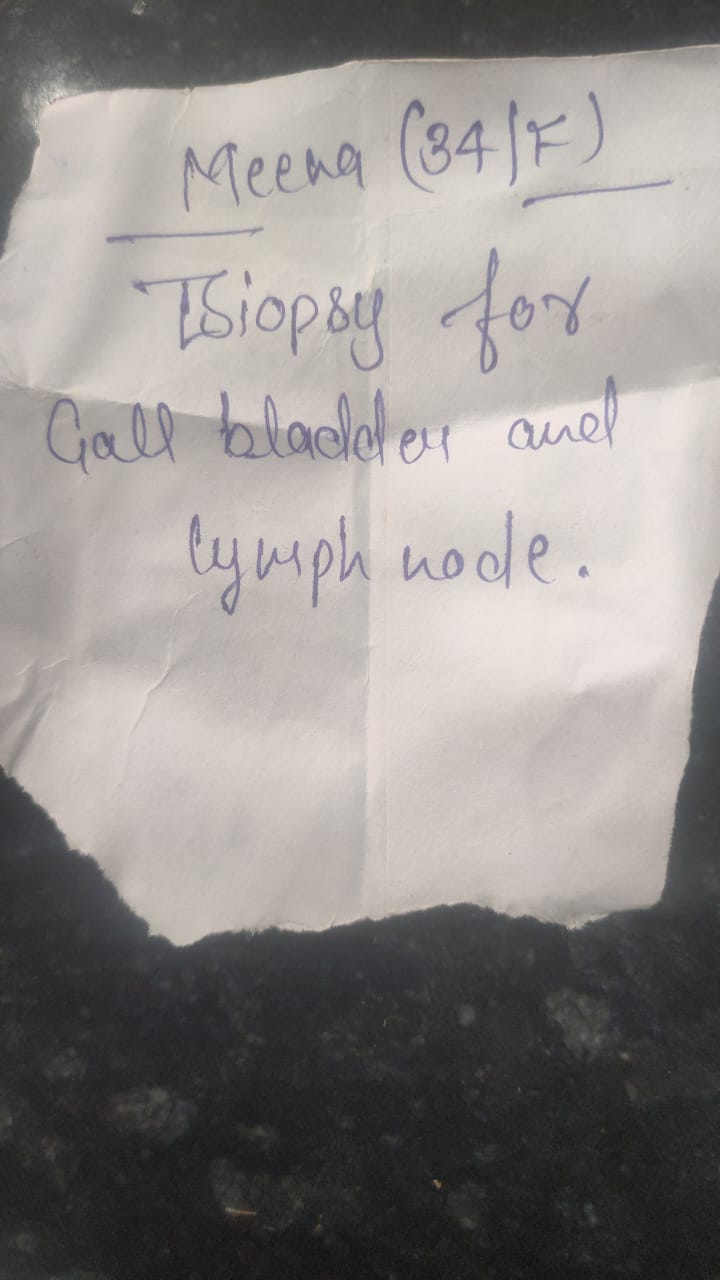 Meena (34/F)
Biopsy for
Gall bladder and
lymph node.